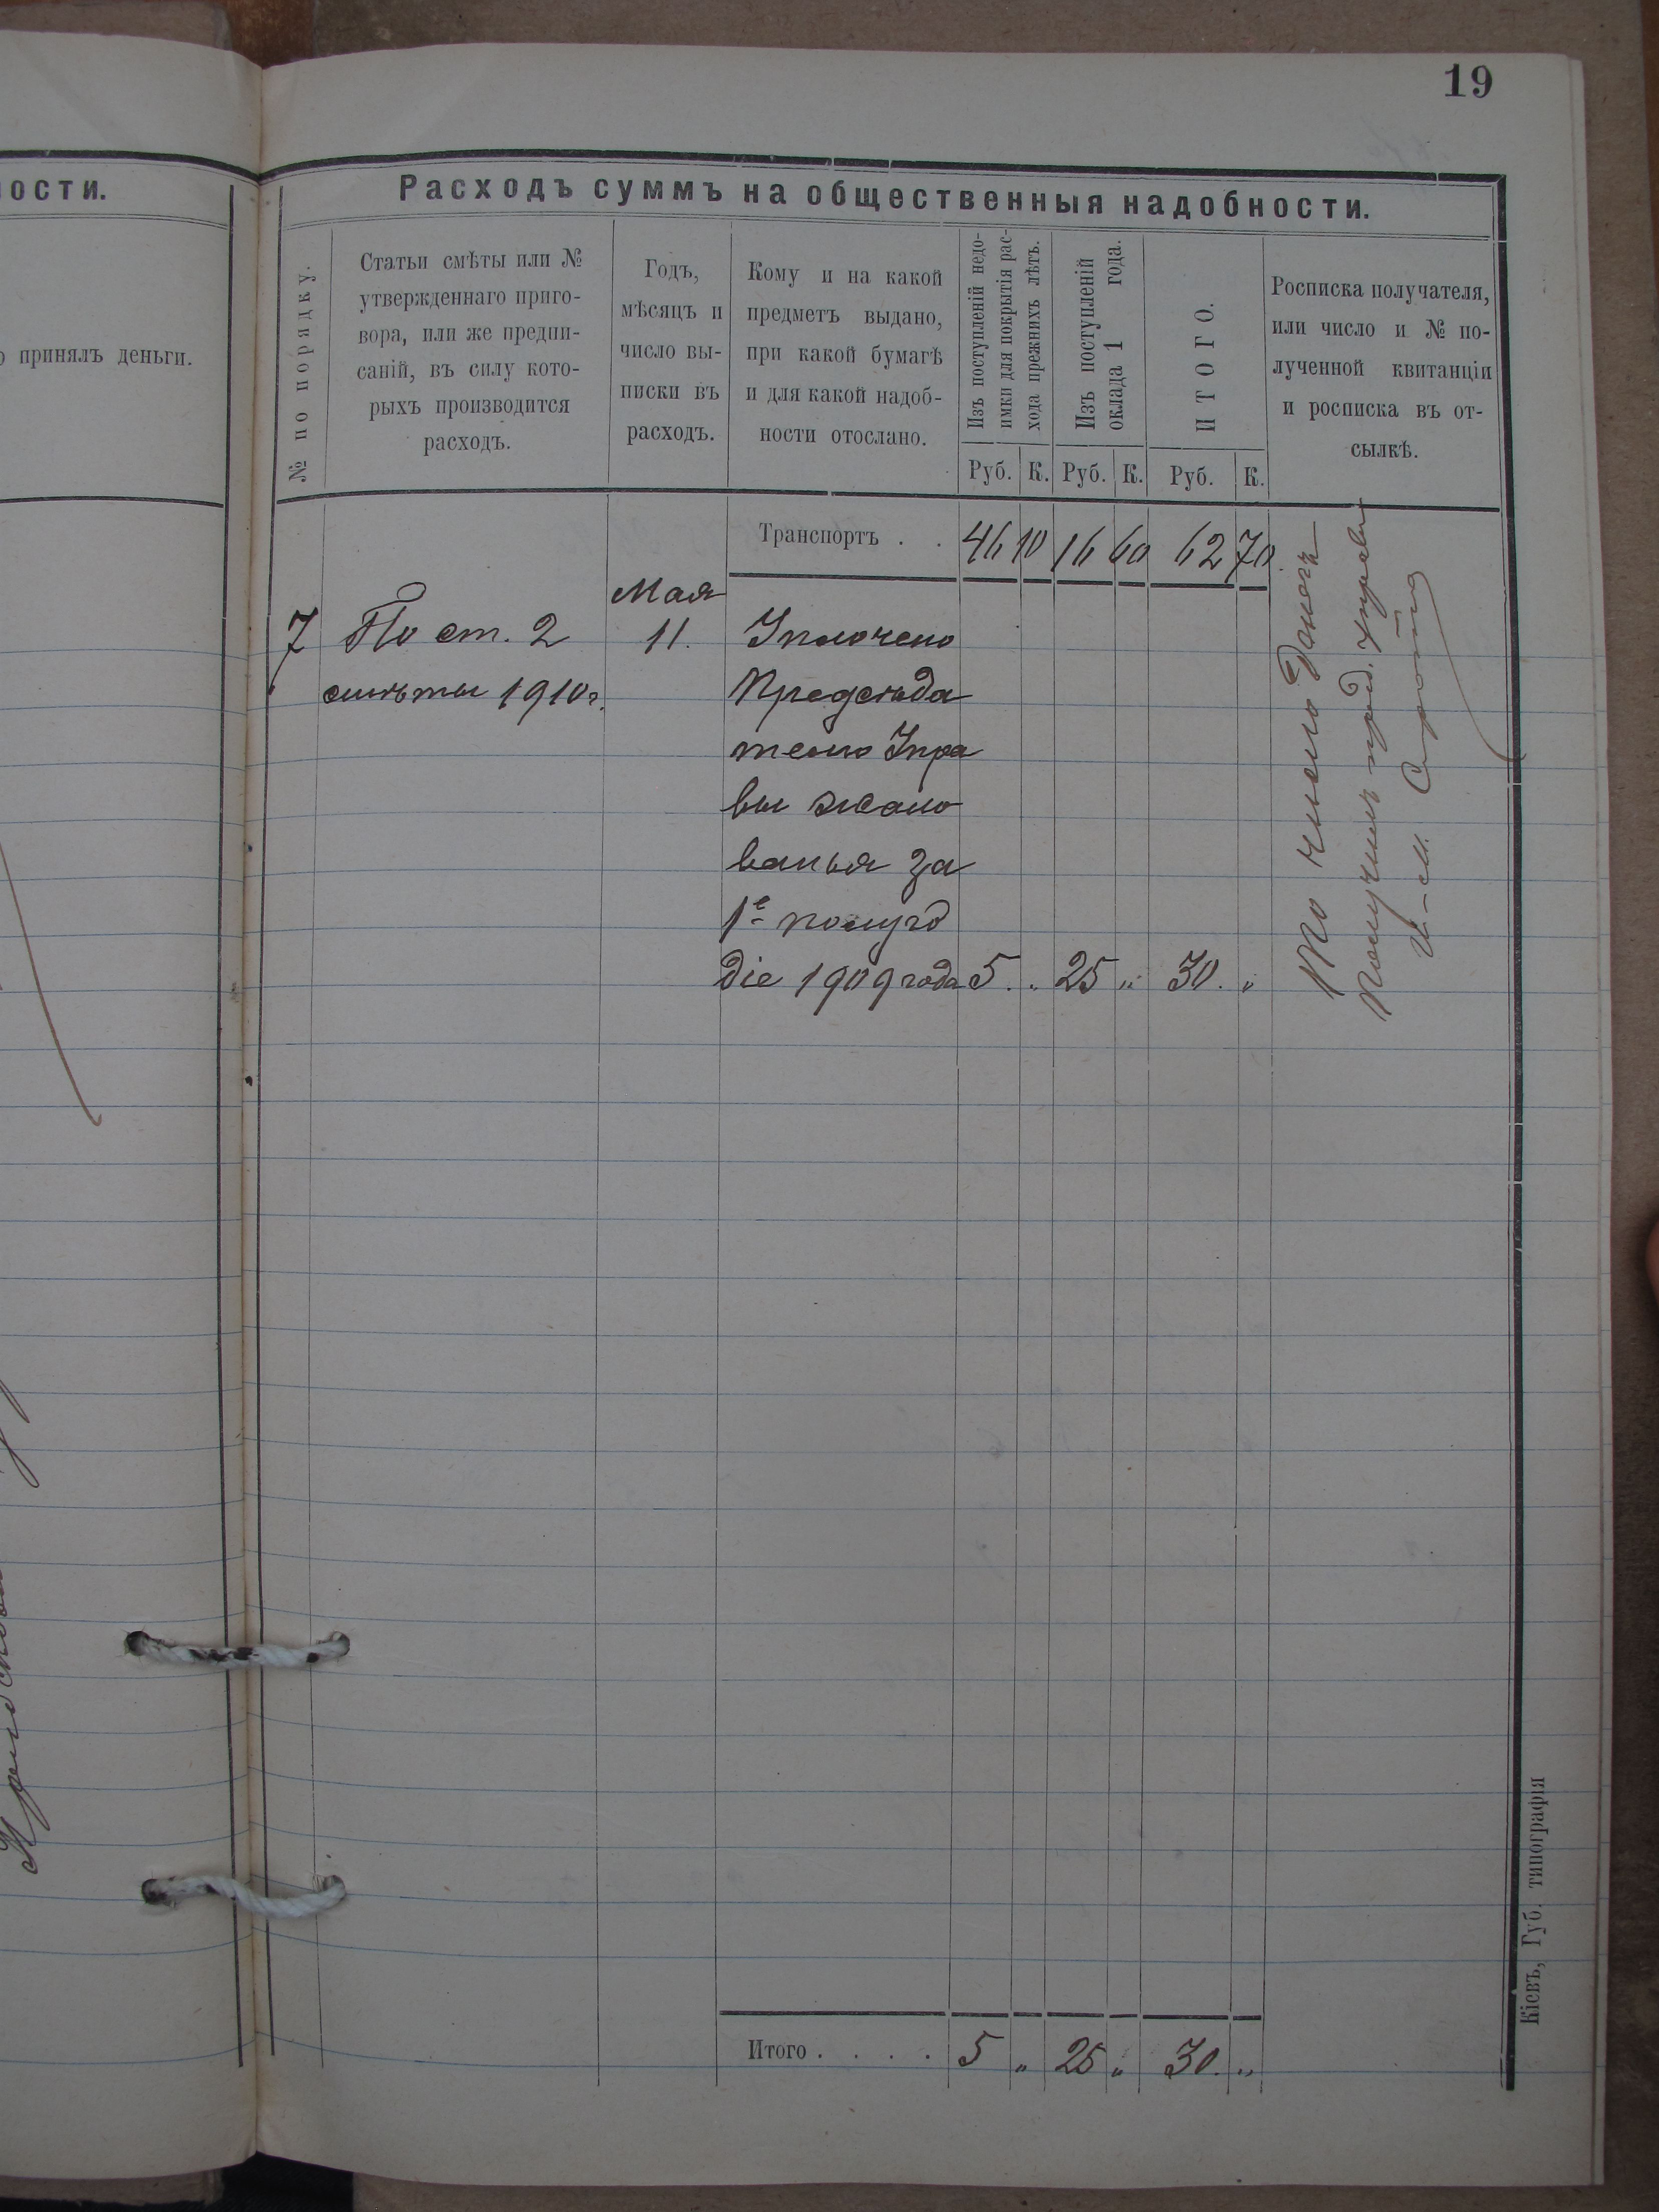 19
ости.
принялъ деньги.
Расходъ суммъ на общественныя надобности.
№ по порядку.
Статьи смѣты или №
утвержденнаго приго-
вора, или же предпи-
саній, въ силу кото-
рыхъ производится
расходъ.
Годъ,
мѣсяцъ и
число вы-
писки въ
расходъ.
Кому и на какой
предметъ выдано,
при какой бумагѣ
и для какой надоб-
ности отослано.
Изъ поступленій недо-
имки для покрытія рас-
хода прежнихъ лѣтъ.
Изъ поступленій
оклада 1 года.
ИТОГО.
Росписка получателя,
или число и № по-
лученной квитанціи
и росписка въ от-
сылкѣ.
Руб. К. Руб. К. Руб. К.
Транспортъ . . 46 10 16 60 62 70.
Мая
7 По ст. 2 11. Уплочено
смѣты 1910 г. Предсѣда
телю Упра
вы жало
ванья за
1е полуго
діе 1909 года 5. „ 25 „ 30. „
Получилъ пред. Управы
Итого . . . . 5 „ 25 „ 30. „
Кіевъ, Губ. типографія